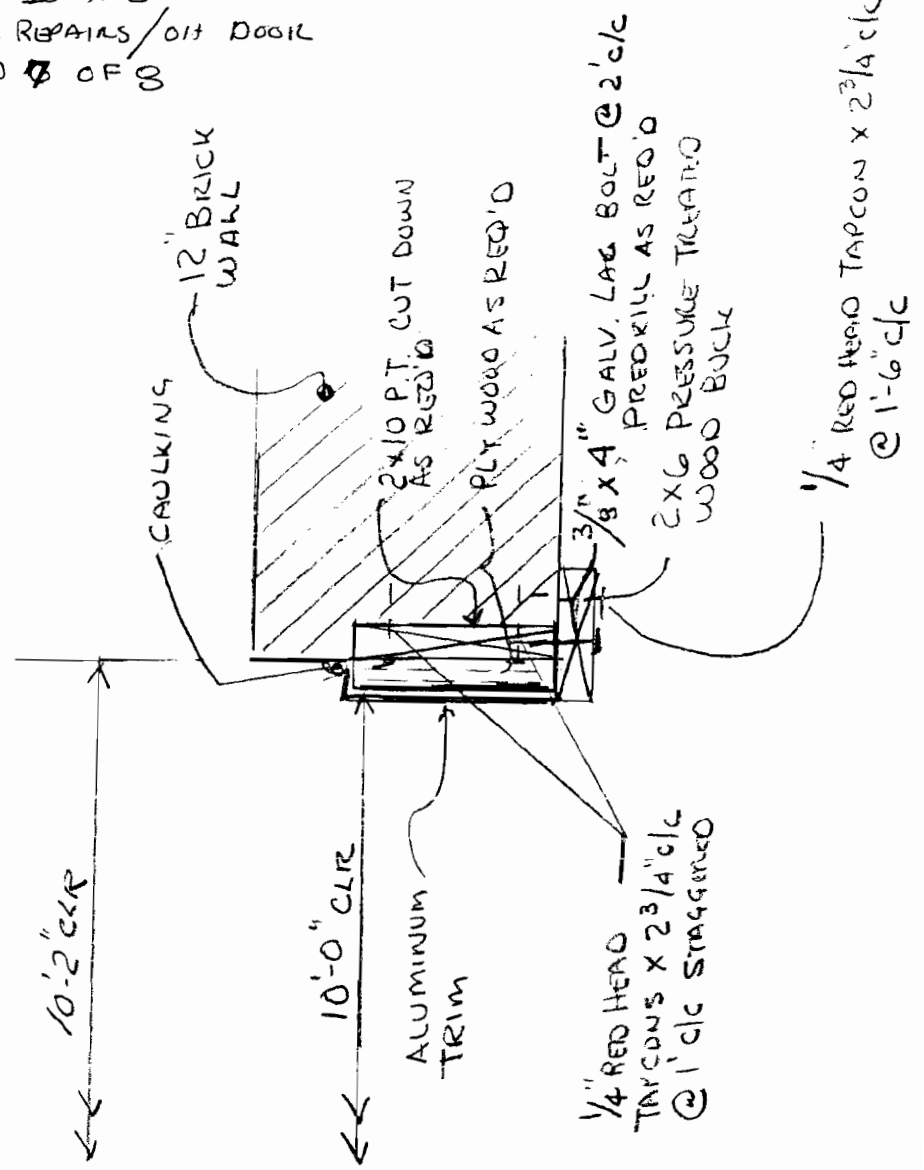 REPAIRS/OH DOOR
OF 8
CAULKING
12" BRICK
WALL
2x10 P.T. CUT DOWN
AS REQ'D
PLYWOOD AS REQ'D
3/8" X 4" GALV. LAG BOLT @ 2' c/c
PREDRILL AS REQ'D
2X6 PRESSURE TREATED
WOOD BUCK
1/4" RED HEAD TAPCON X 2 3/4" c/c
@ 1'-6" c/c
10'-2" CLR
10'-0" CLR
ALUMINUM
TRIM
1/4" RED HEAD
TAPCONS X 2 3/4" c/c
@ 1' c/c STAGGERED